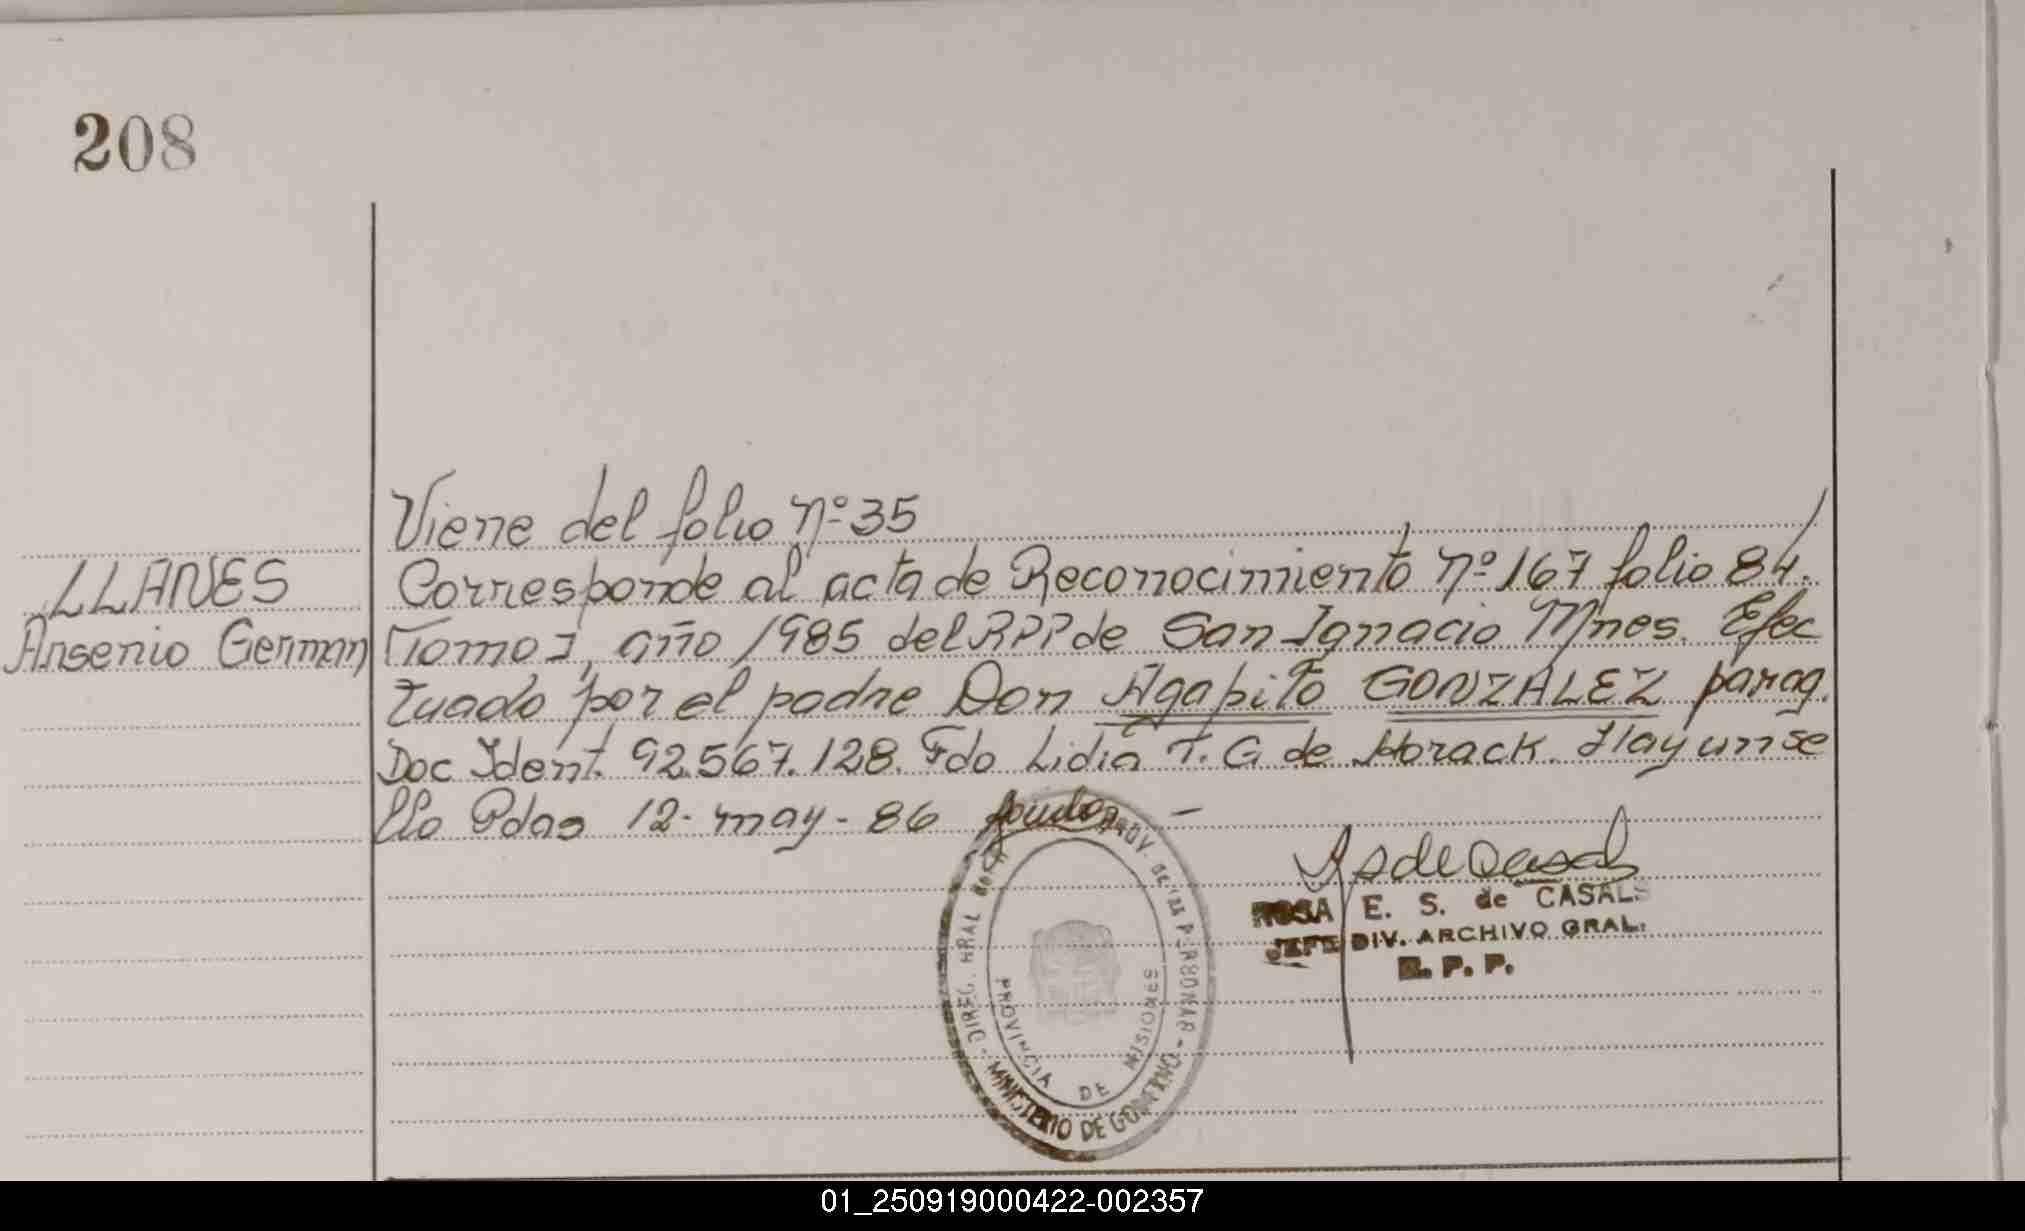 208
Viene del folio Nº 35
LLANES
Arsenio German
Corresponde al acta de Reconocimiento Nº 167 folio 84.
Tomo I, año 1985 del RPP de San Ignacio Mnes. Efec
tuado por el padre Don Agapito GONZALEZ parag.
Doc Ident. 92.567.128. Fdo Lidia T. G de Horack. Hay un se
llo Pdas 12-may-86
ROSA E. S. de CASALS
JEFE DIV. ARCHIVO GRAL.
R. P. P.
PROV. DE LAS PERSONAS - DIREC. GRAL
PROVINCIA DE MISIONES
MINISTERIO DE GOBIERNO
01_250919000422-002357